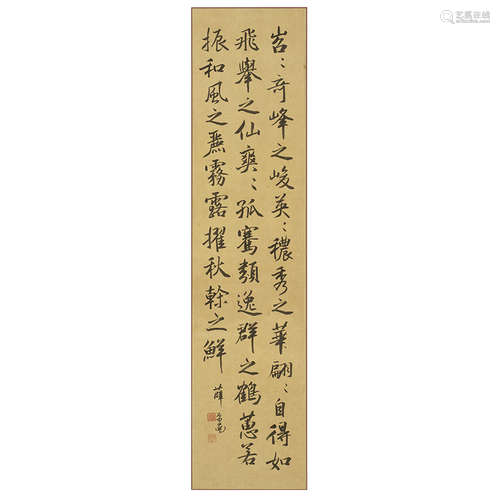 岧〻奇峰之峻英〻穠秀之華翩〻自得如
飛舉之仙奭〻孤騫類逸群之鶴蕙若
振和風之麃霧露擢秋榦之鮮
薛